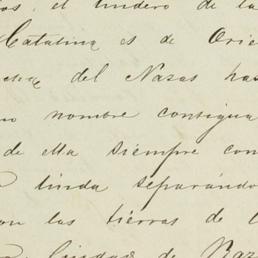 os, el lindero de la
Catalina es de Orie
del Nazas has
nombre contigua
de ella siempre con
linda separándo
on las tierras de l
Lindas de Raz